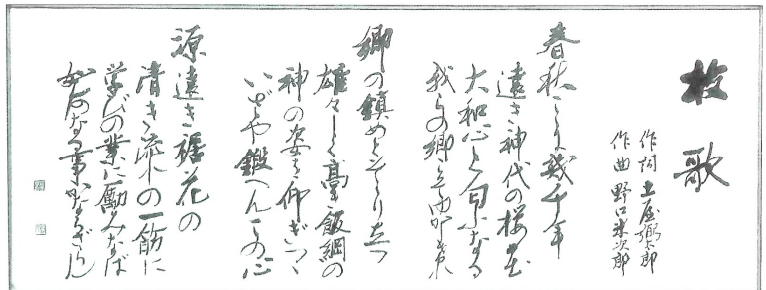 校歌
作詞 土屋弼太郎
作曲 野口米次郎
春秋こゝに幾千年
遠き神代の桜花
大和心と匂ふなる
我らの郷
郷の鎮めとそゝり立つ
雄々しく高き飯綱の
神の姿を仰ぎつゝ
いざや鍛へんこの心
源遠き裾花の
清き流れの一筋に
学びの業に励みなば
如何なる事かならざらん